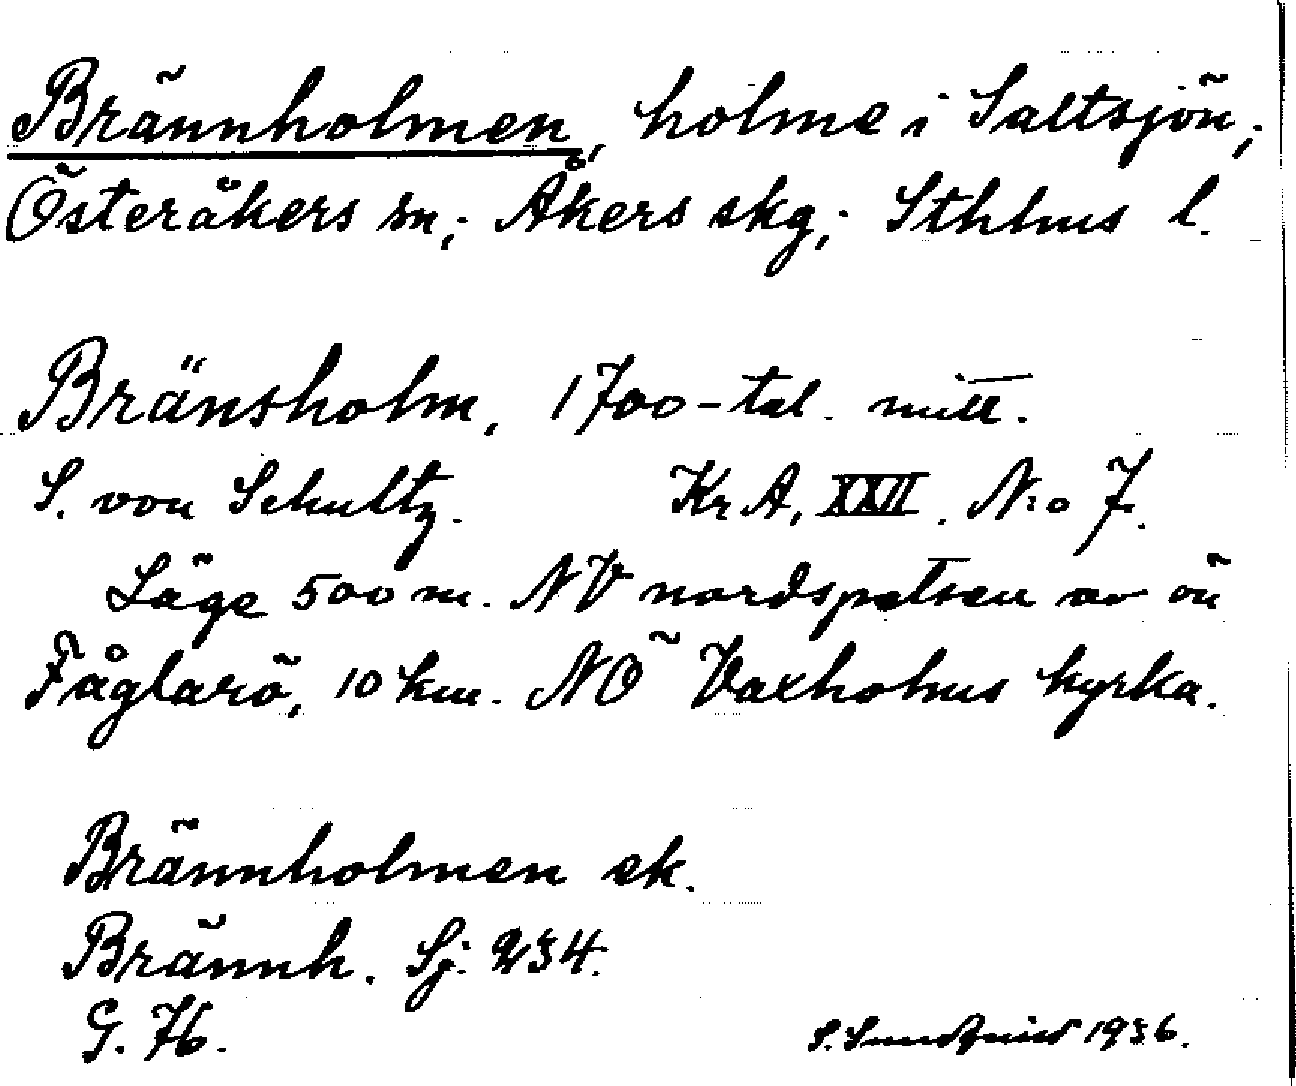 Brännholmen, holme i Saltsjön;
Österåkers sn; Åkers skg; Sthlms l.
Bränsholm, 1700-tal. mitt.
S. von Schultz. KrA, XXII. N:o 7.
Läge 500 m. NV nordspetsen av ön
Fåglarö, 10 km. NÖ Vaxholms kyrka.
Brännholmen ek.
Brännh. Sj. 234.
G. 76.
S. 1936.